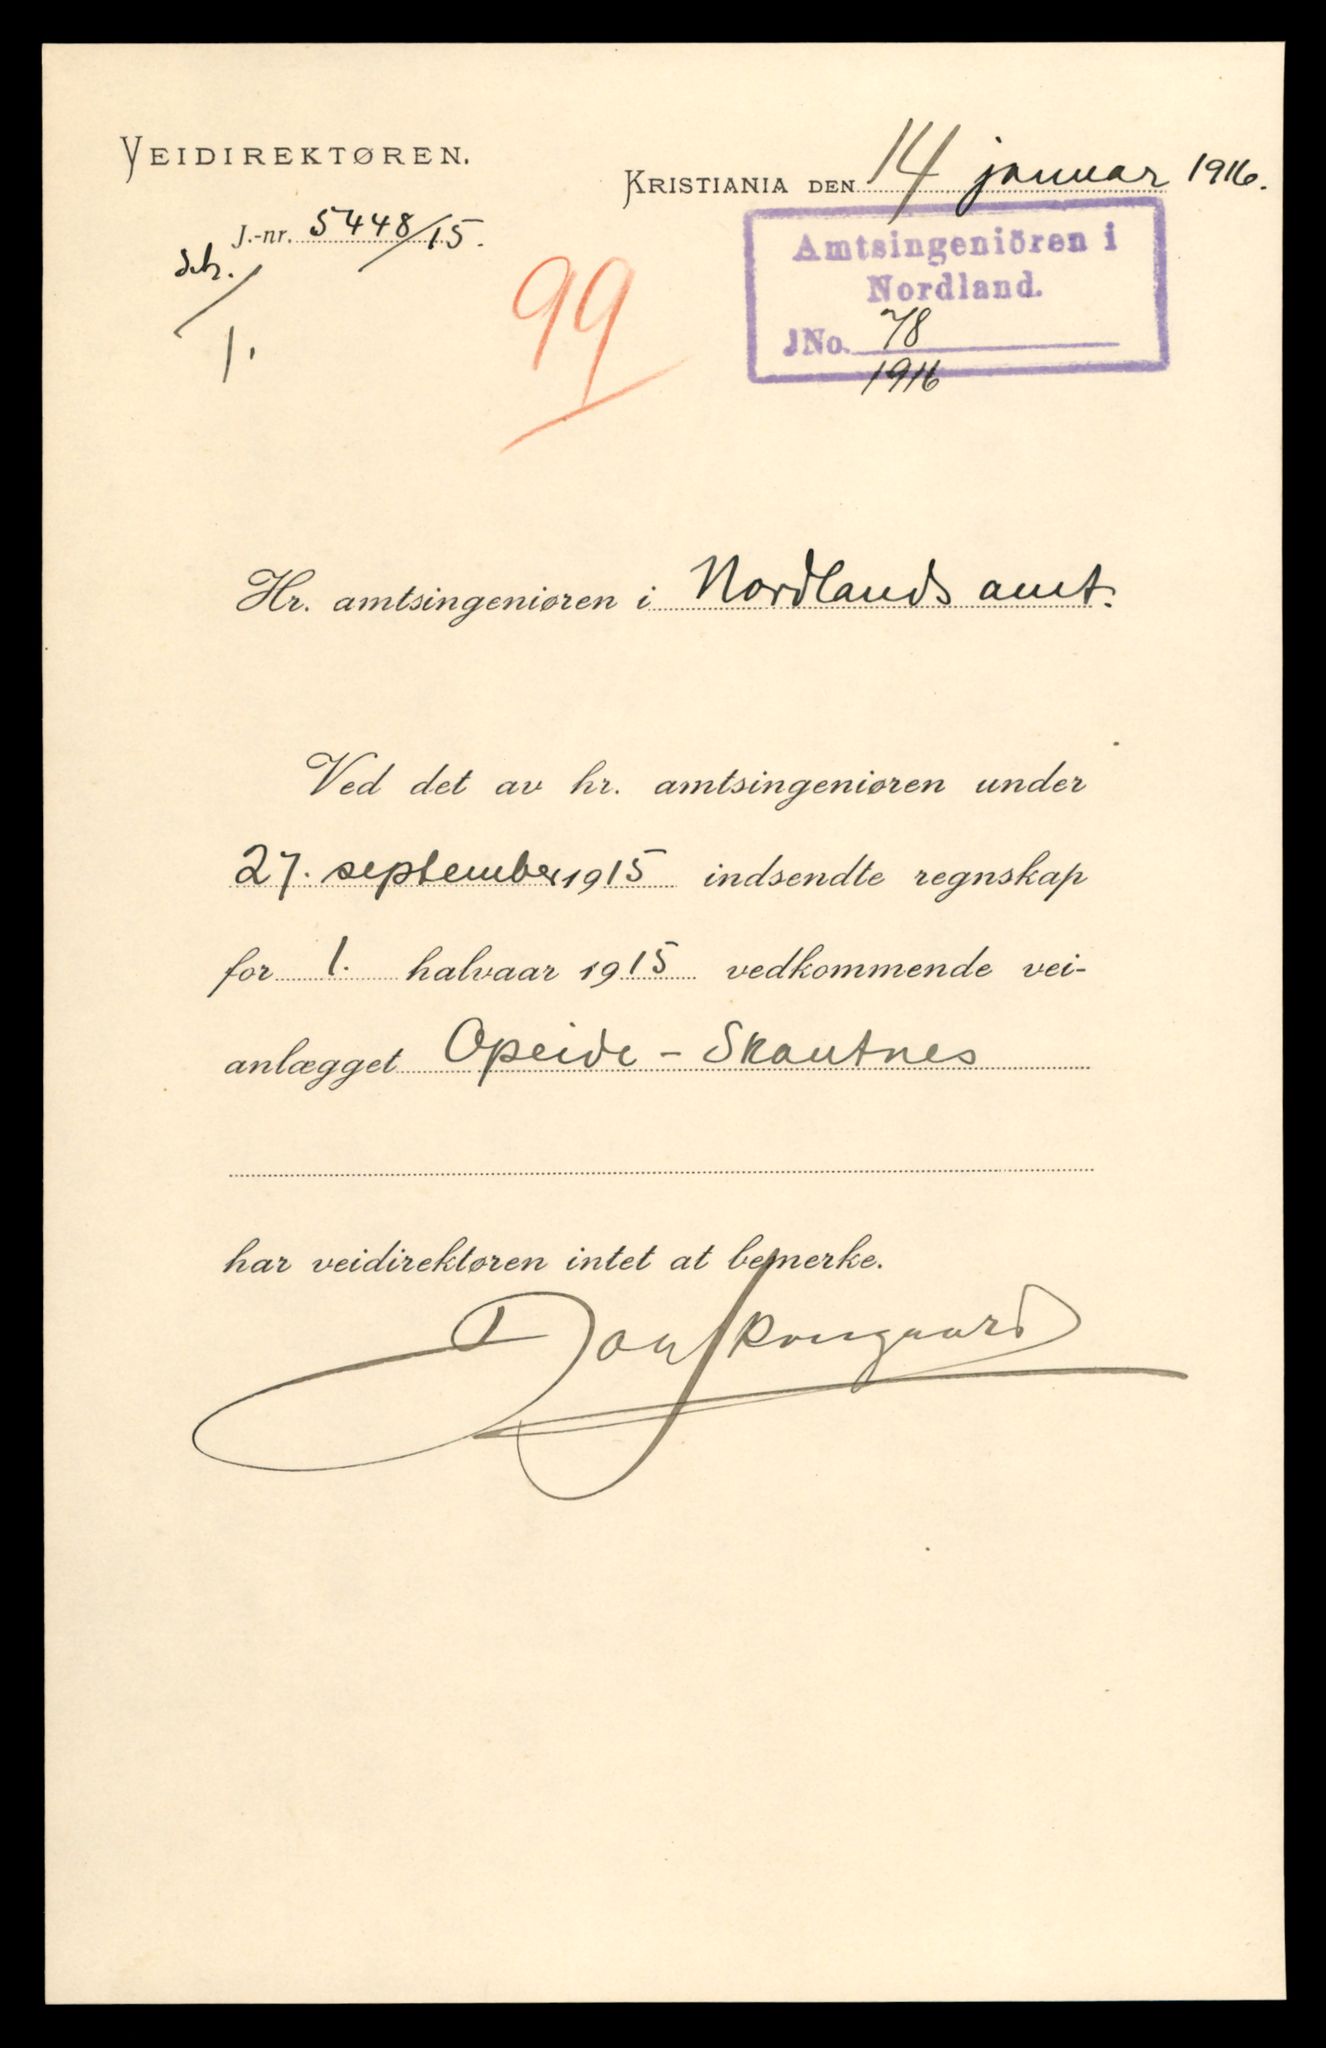 VEIDIREKTØREN.
KRISTIANIA DEN 14 januar 1916.
J.-nr. 5448/15.
1.
99
Amtsingeniören i
Nordland.
JNo. 78
1916
Hr. amtsingeniøren i Nordlands amt.
Ved det av hr. amtsingeniøren under
27. september 1915 indsendte regnskap
for 1. halvaar 1915 vedkommende vei-
anlægget Opeide - Skautnes
har veidirektøren intet at bemerke.
Skougaard